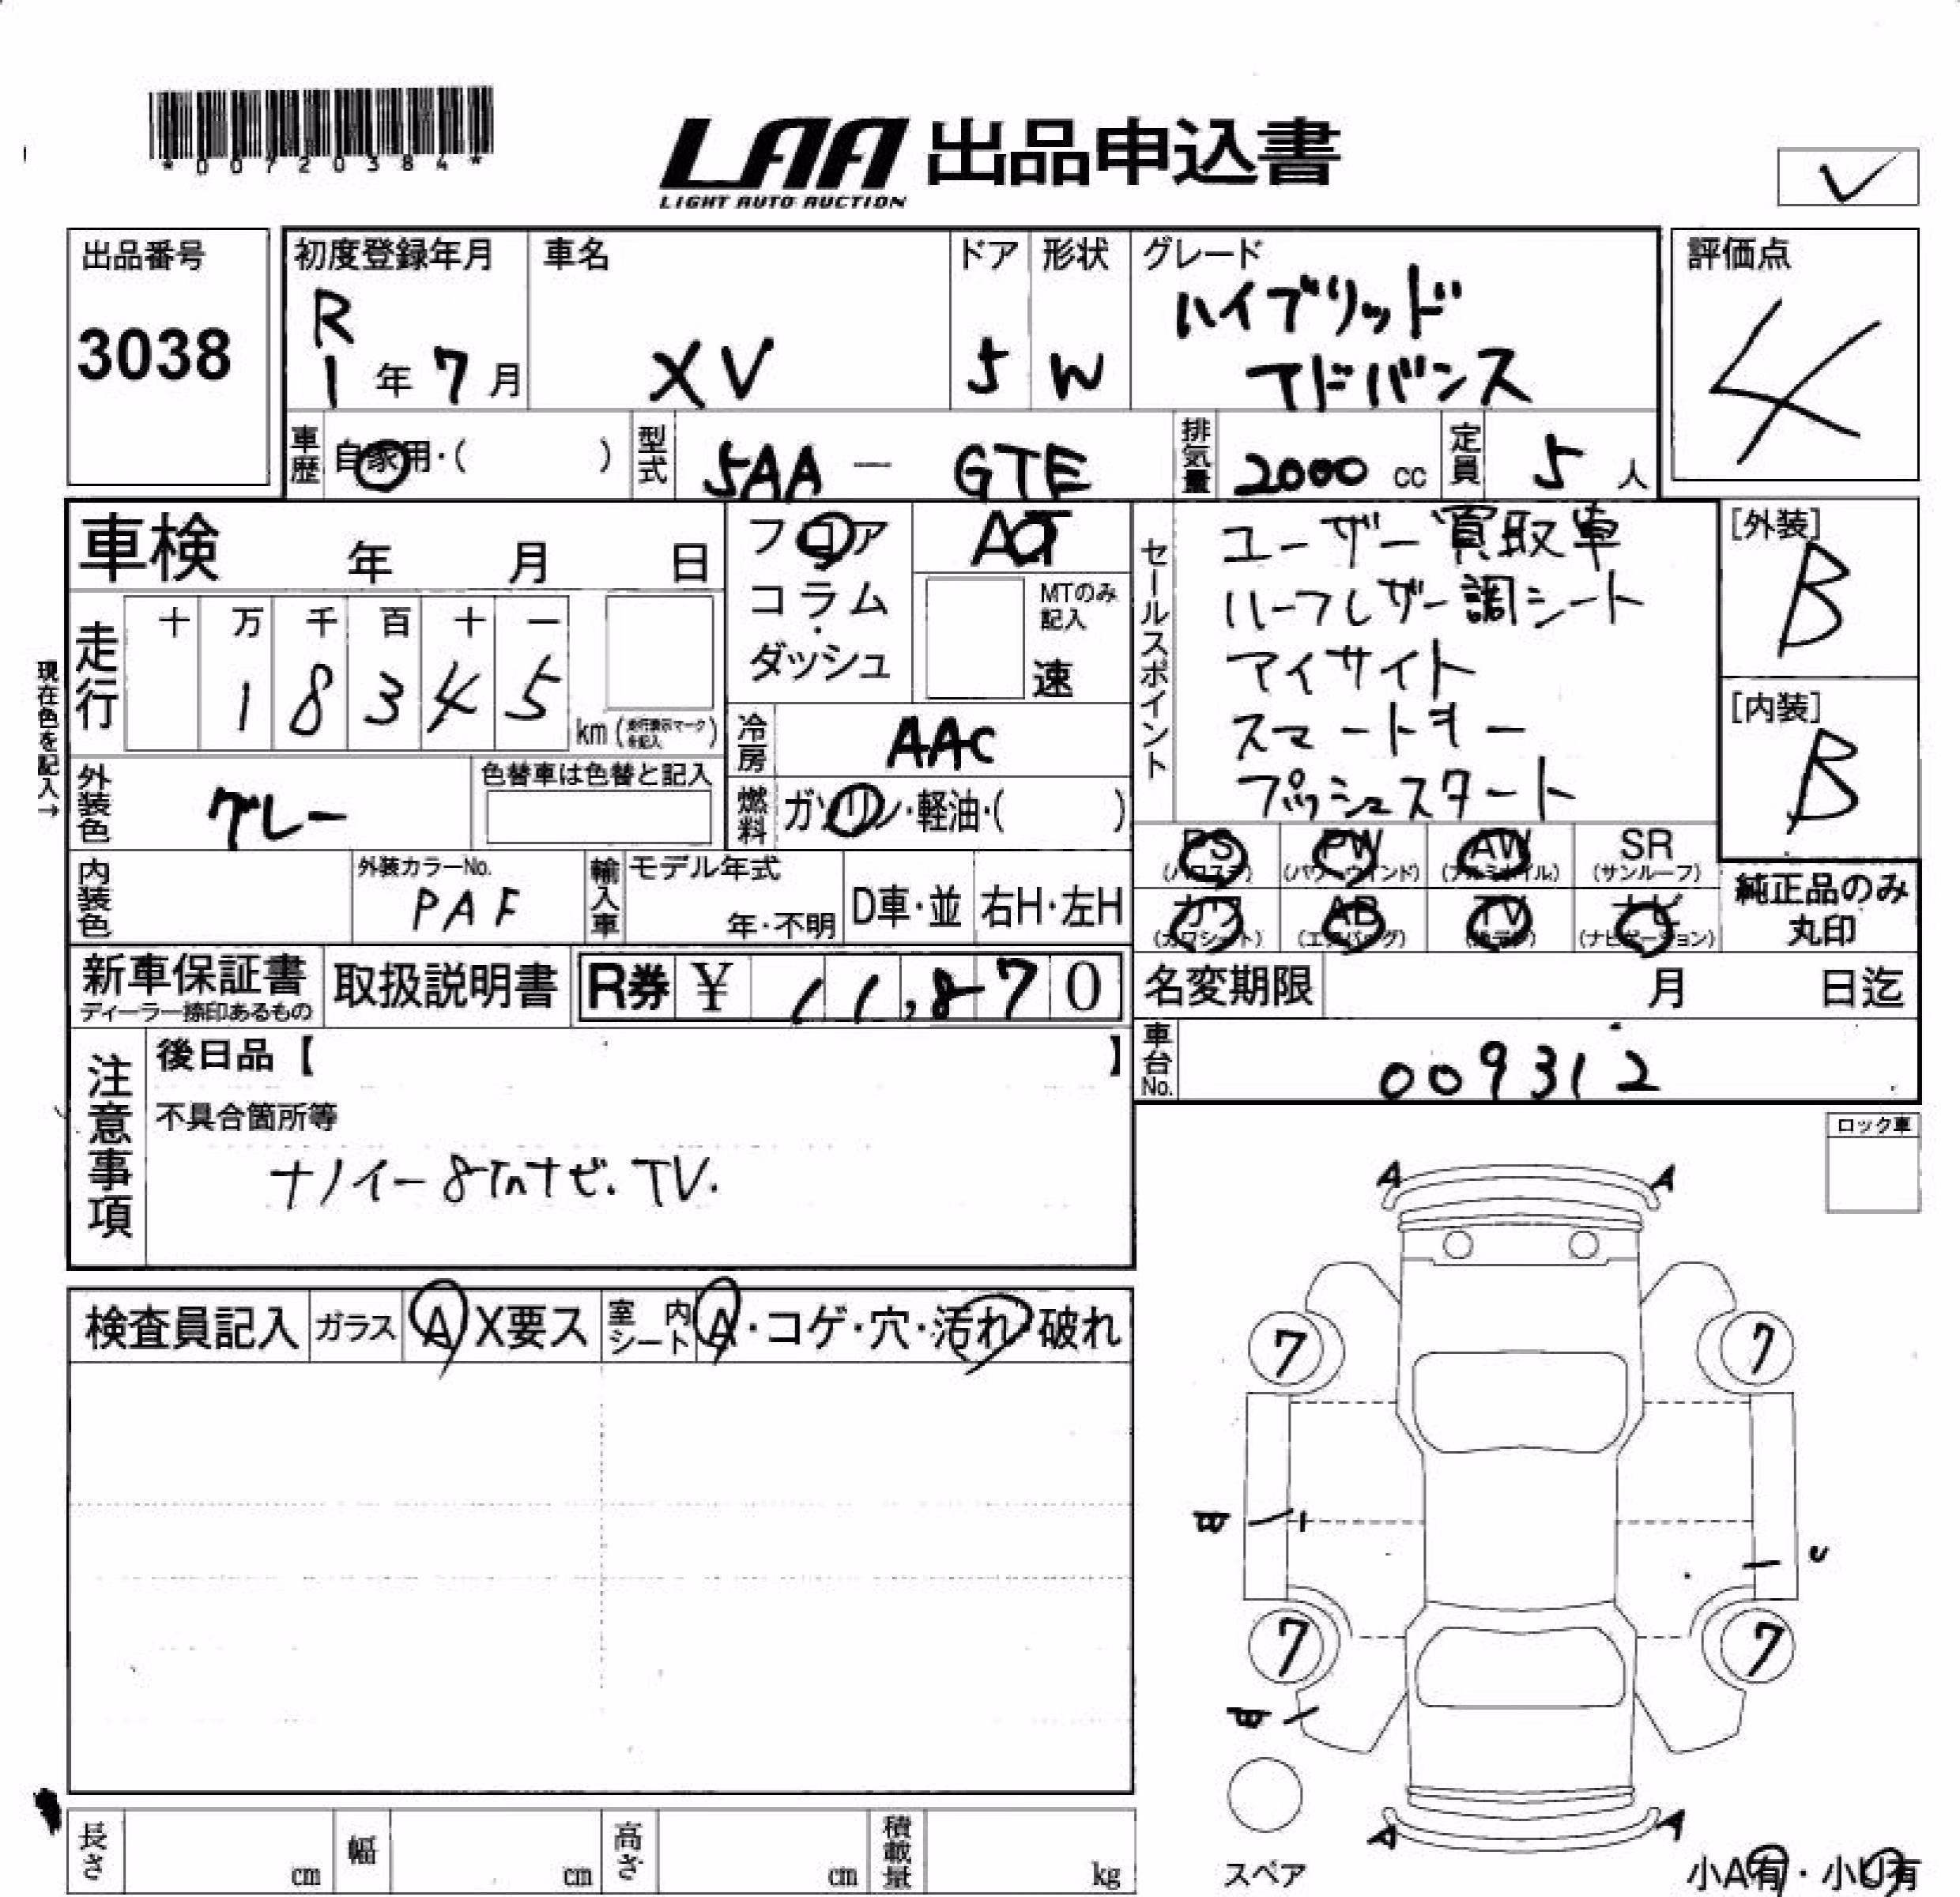 *00720384*
LAA 出品申込書
LIGHT AUTO AUCTION
出品番号
3038
初度登録年月
R
1年7月
車名
XV
ドア
5
形状
W
グレード
ハイブリッド
アドバンス
評価点
4
車歴
自家用・( )
型式
5AA - GTE
排気量
2000 cc
定員
5人
車検 年 月 日
フロア
コラム
・
ダッシュ
AT
MTのみ
記入
速
セールスポイント
ユーザー買取車
ハーフレザー調シート
アイサイト
スマートキー
プッシュスタート
[外装]
B
[内装]
B
現在色を記入→
走行
十 万 千 百 十 一
1 8 3 4 5
km (走行表示マークを記入)
冷房
AAC
外装色
グレー
色替車は色替と記入
燃料
ガソリン・軽油・( )
PS PW AW SR
(パワステ) (パワーウインド) (アルミホイル) (サンルーフ)
カワ AB TV ナビ
(カワシート) (エアバッグ) (ナビゲーション)
純正品のみ
丸印
内装色
外装カラーNo.
PAF
輸入車
モデル年式
年・不明
D車・並
右H・左H
新車保証書
ディーラー捺印あるもの
取扱説明書
R券 ¥ 11,870
名変期限 月 日迄
車台No.
009312
注意事項
後日品【 】
不具合箇所等
ナノイー 8inナビ. TV.
ロック車
検査員記入
ガラス
A X要ス
室内シート
A・コゲ・穴・汚れ・破れ
A A
7 7
B
U
7 7
B
A A
スペア
小A有・小U有
長さ cm
幅 cm
高さ cm
積載量 kg